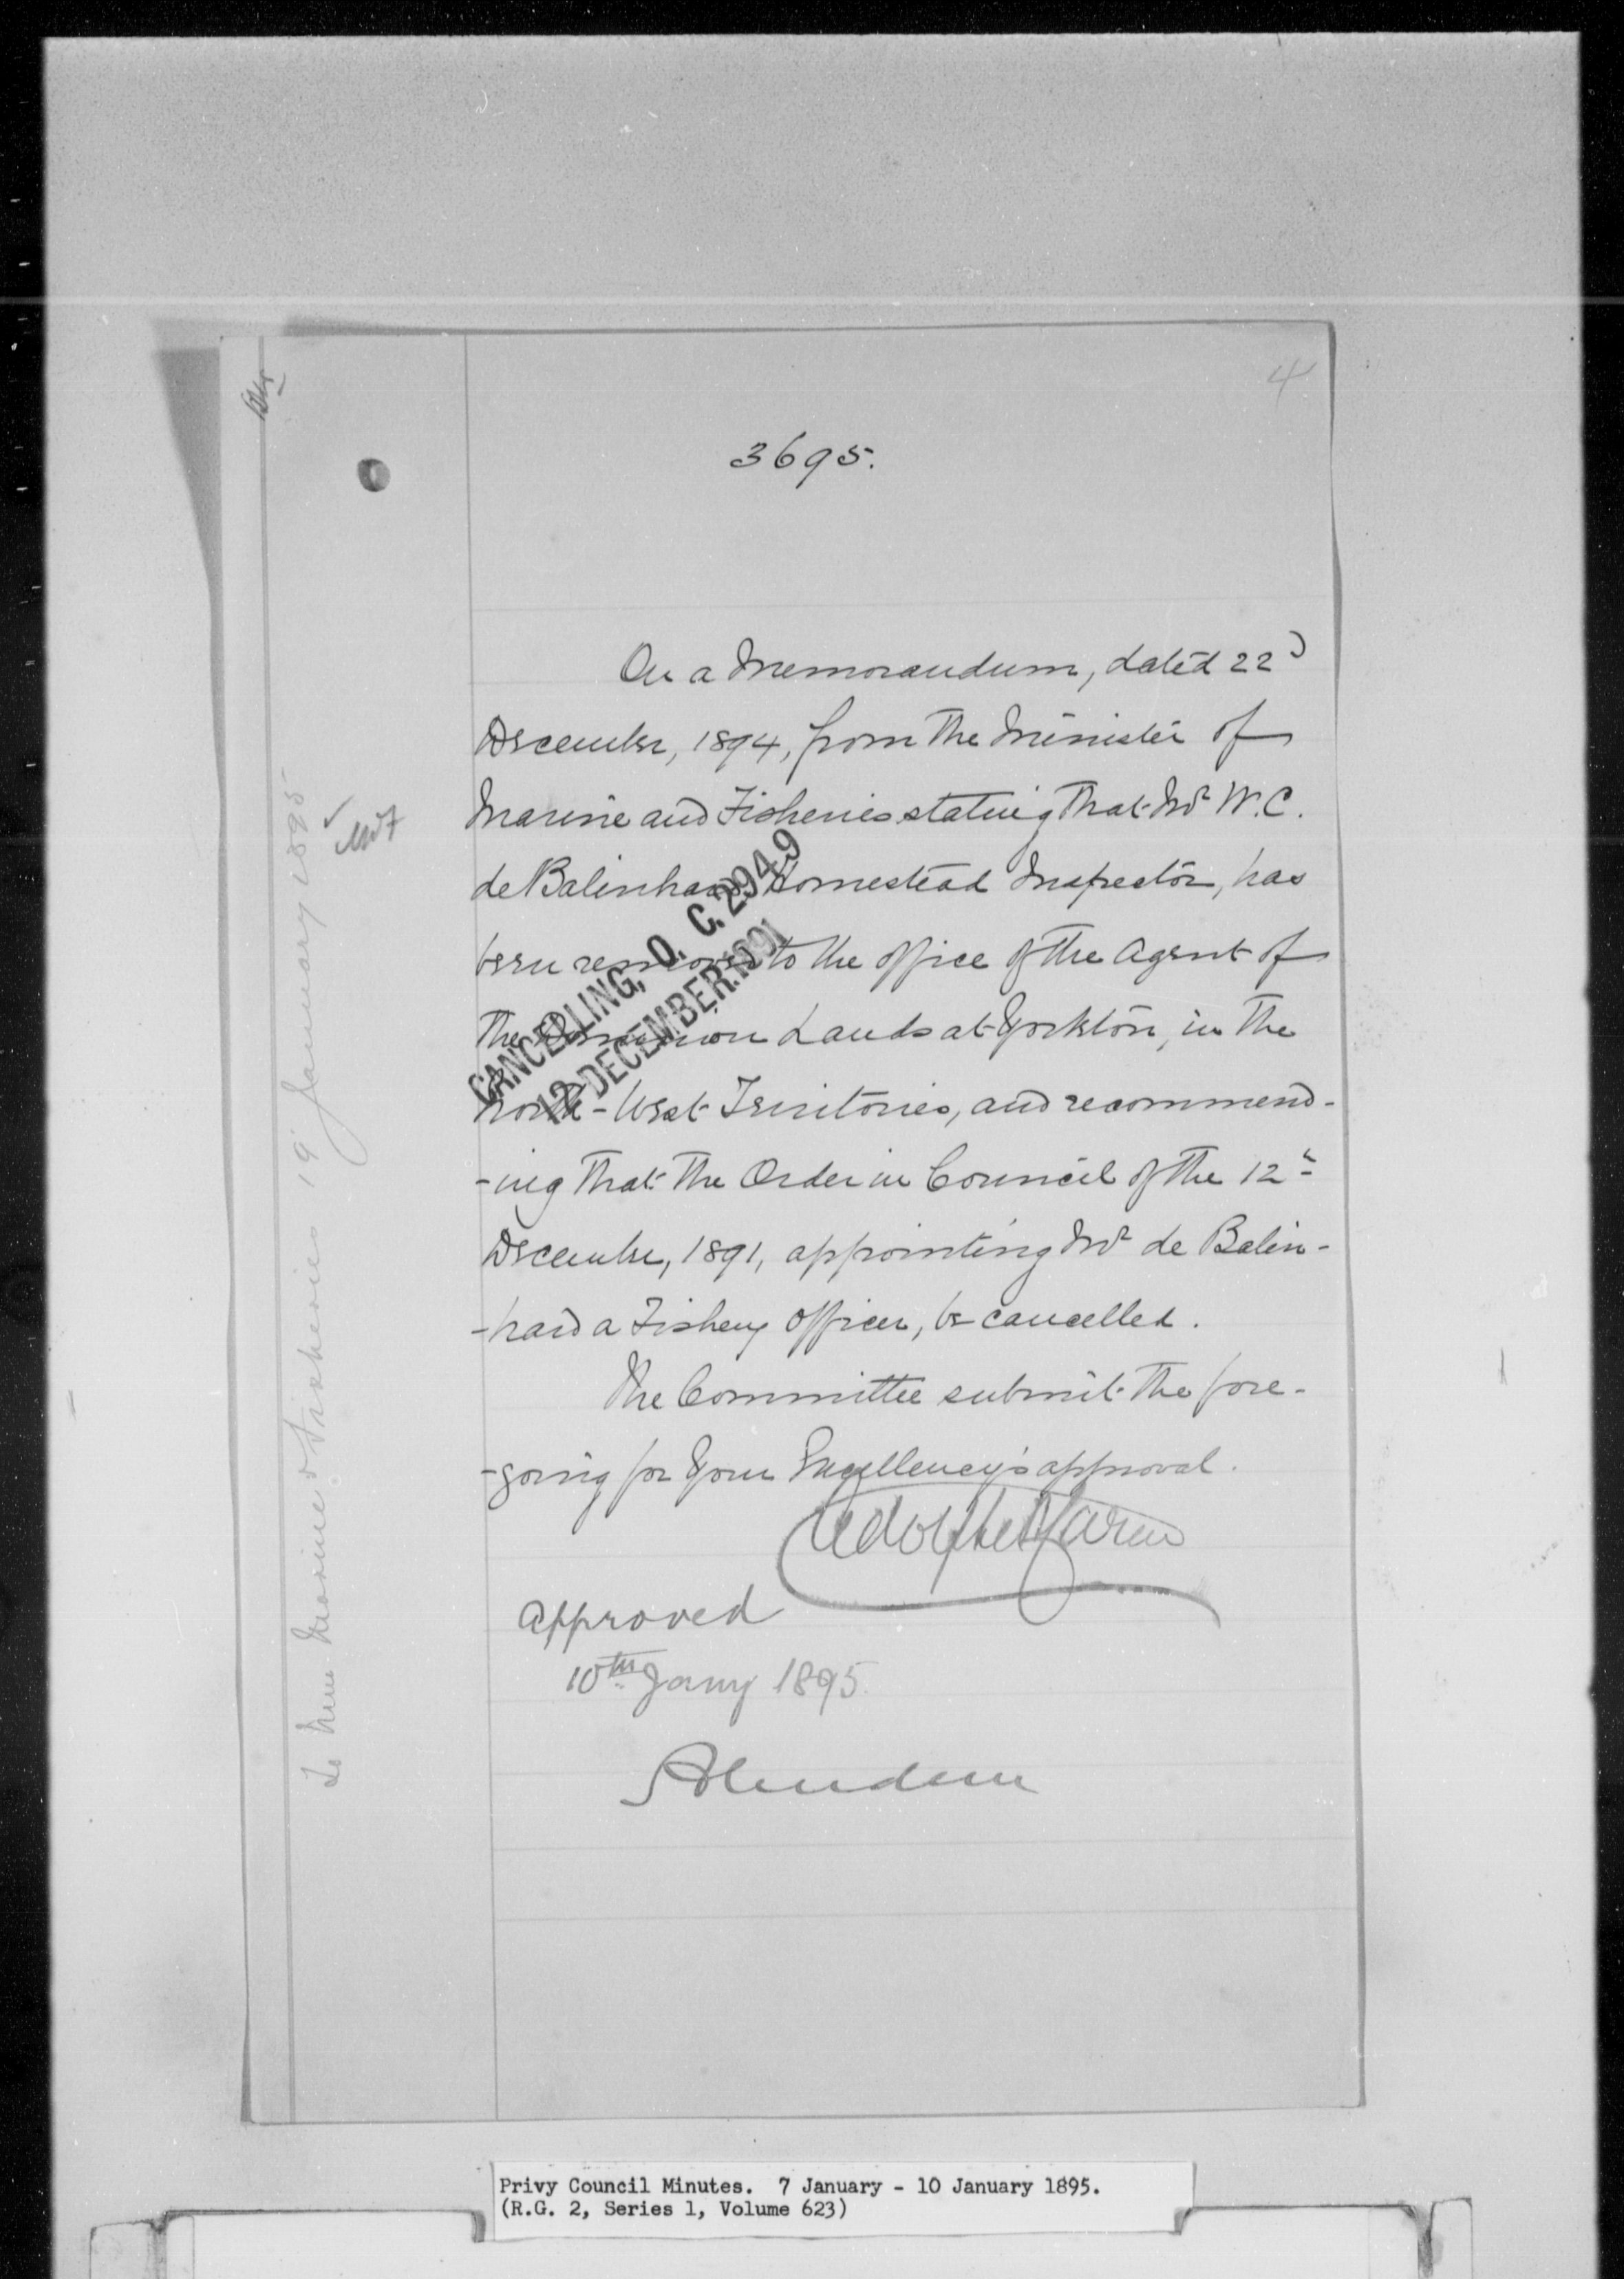 4
3695.
On a Memorandum, dated 22d
December, 1894, from the Minister of
Marine and Fisheries stating that Mr W. C.
de Balinhard Homestead Inspector, has
been removed to the office of the Agent of
the Dominion Lands at Yorkton, in the
North-West Territories, and recommend-
-ing that the Order in Council of the 12th
December, 1891, appointing Mr de Balin-
-hard a Fishery Officer, be cancelled.
The Committee submit the fore-
-going for Your Excellency's approval.
Adolphe P Caron
Approved
10th Jany 1895.
Aberdeen
CANCELLING, O. C. 2949
12 DECEMBER. 1891
To Min Marine & Fisheries 19 January 1895
Privy Council Minutes. 7 January - 10 January 1895.
(R.G. 2, Series 1, Volume 623)